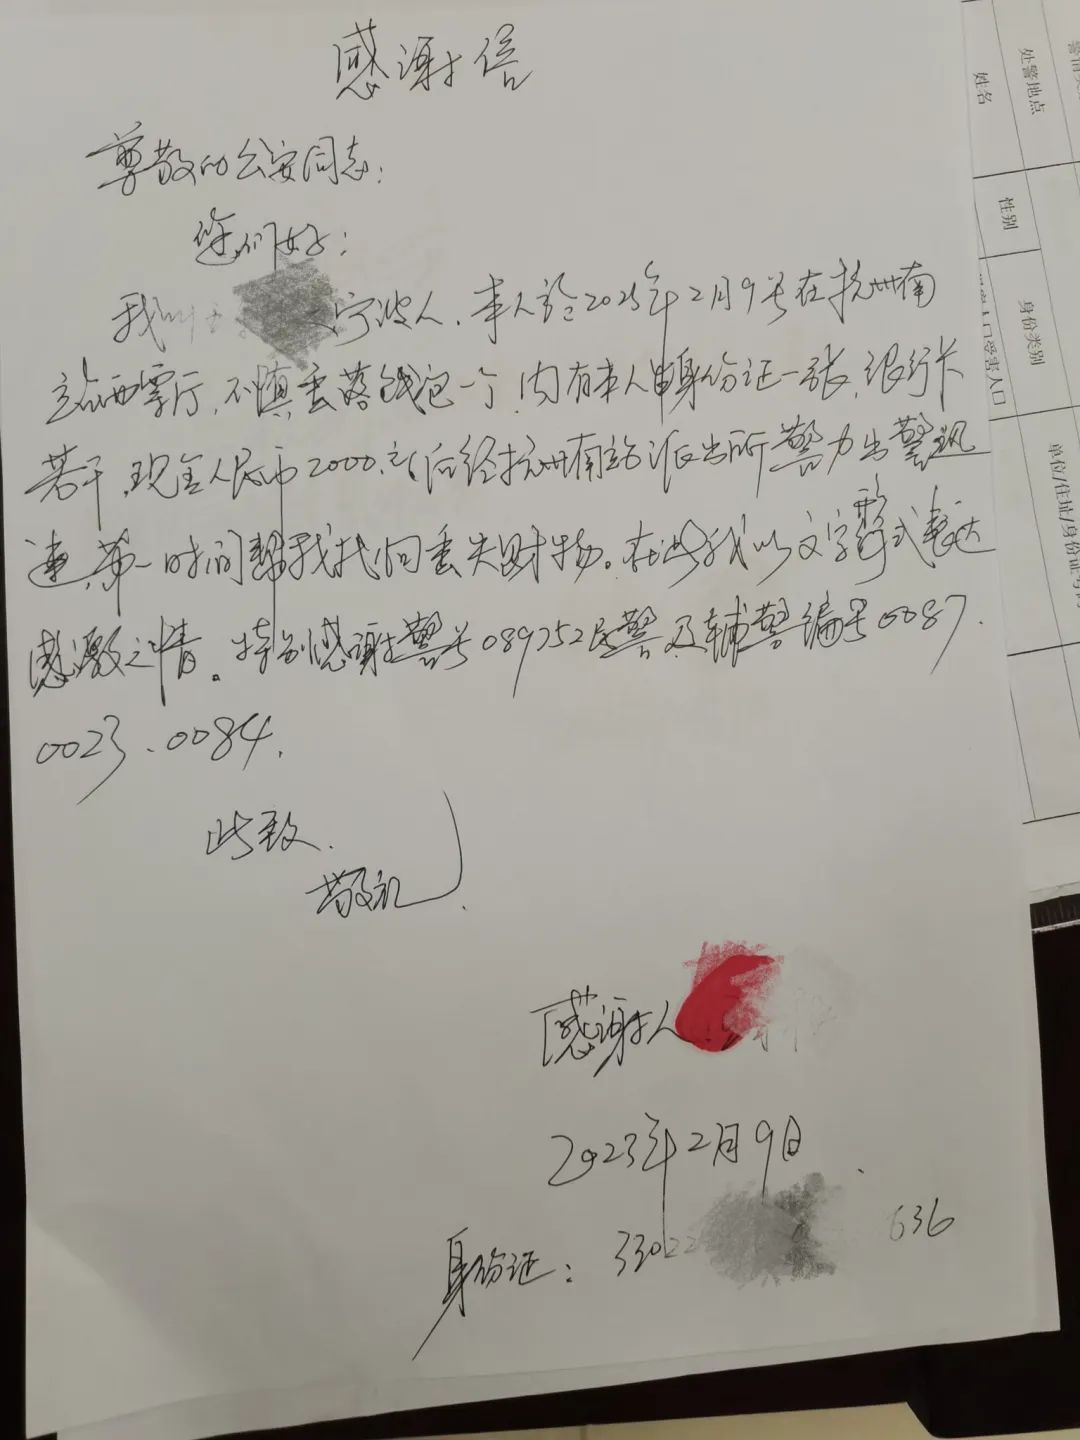 感谢信
尊敬的公安同志:
您们好:
我叫 宁波人, 本人于2023年2月9号在杭州南
站西票厅, 不慎丢落钱包一个, 内有本人身份证一张, 银行卡
若干, 现金人民币2000. 后经杭州南站派出所警力出警迅
速, 第一时间帮我找回丢失财物。在此我以文字形式表达
感激之情。特别感谢警号089752民警及辅警编号0087.
0023、0084.
此致.
敬礼
感谢人
2023年2月9日
身份证: 33022 636
处警地点
姓名
性别
身份类别
单位/住址/身份证号码